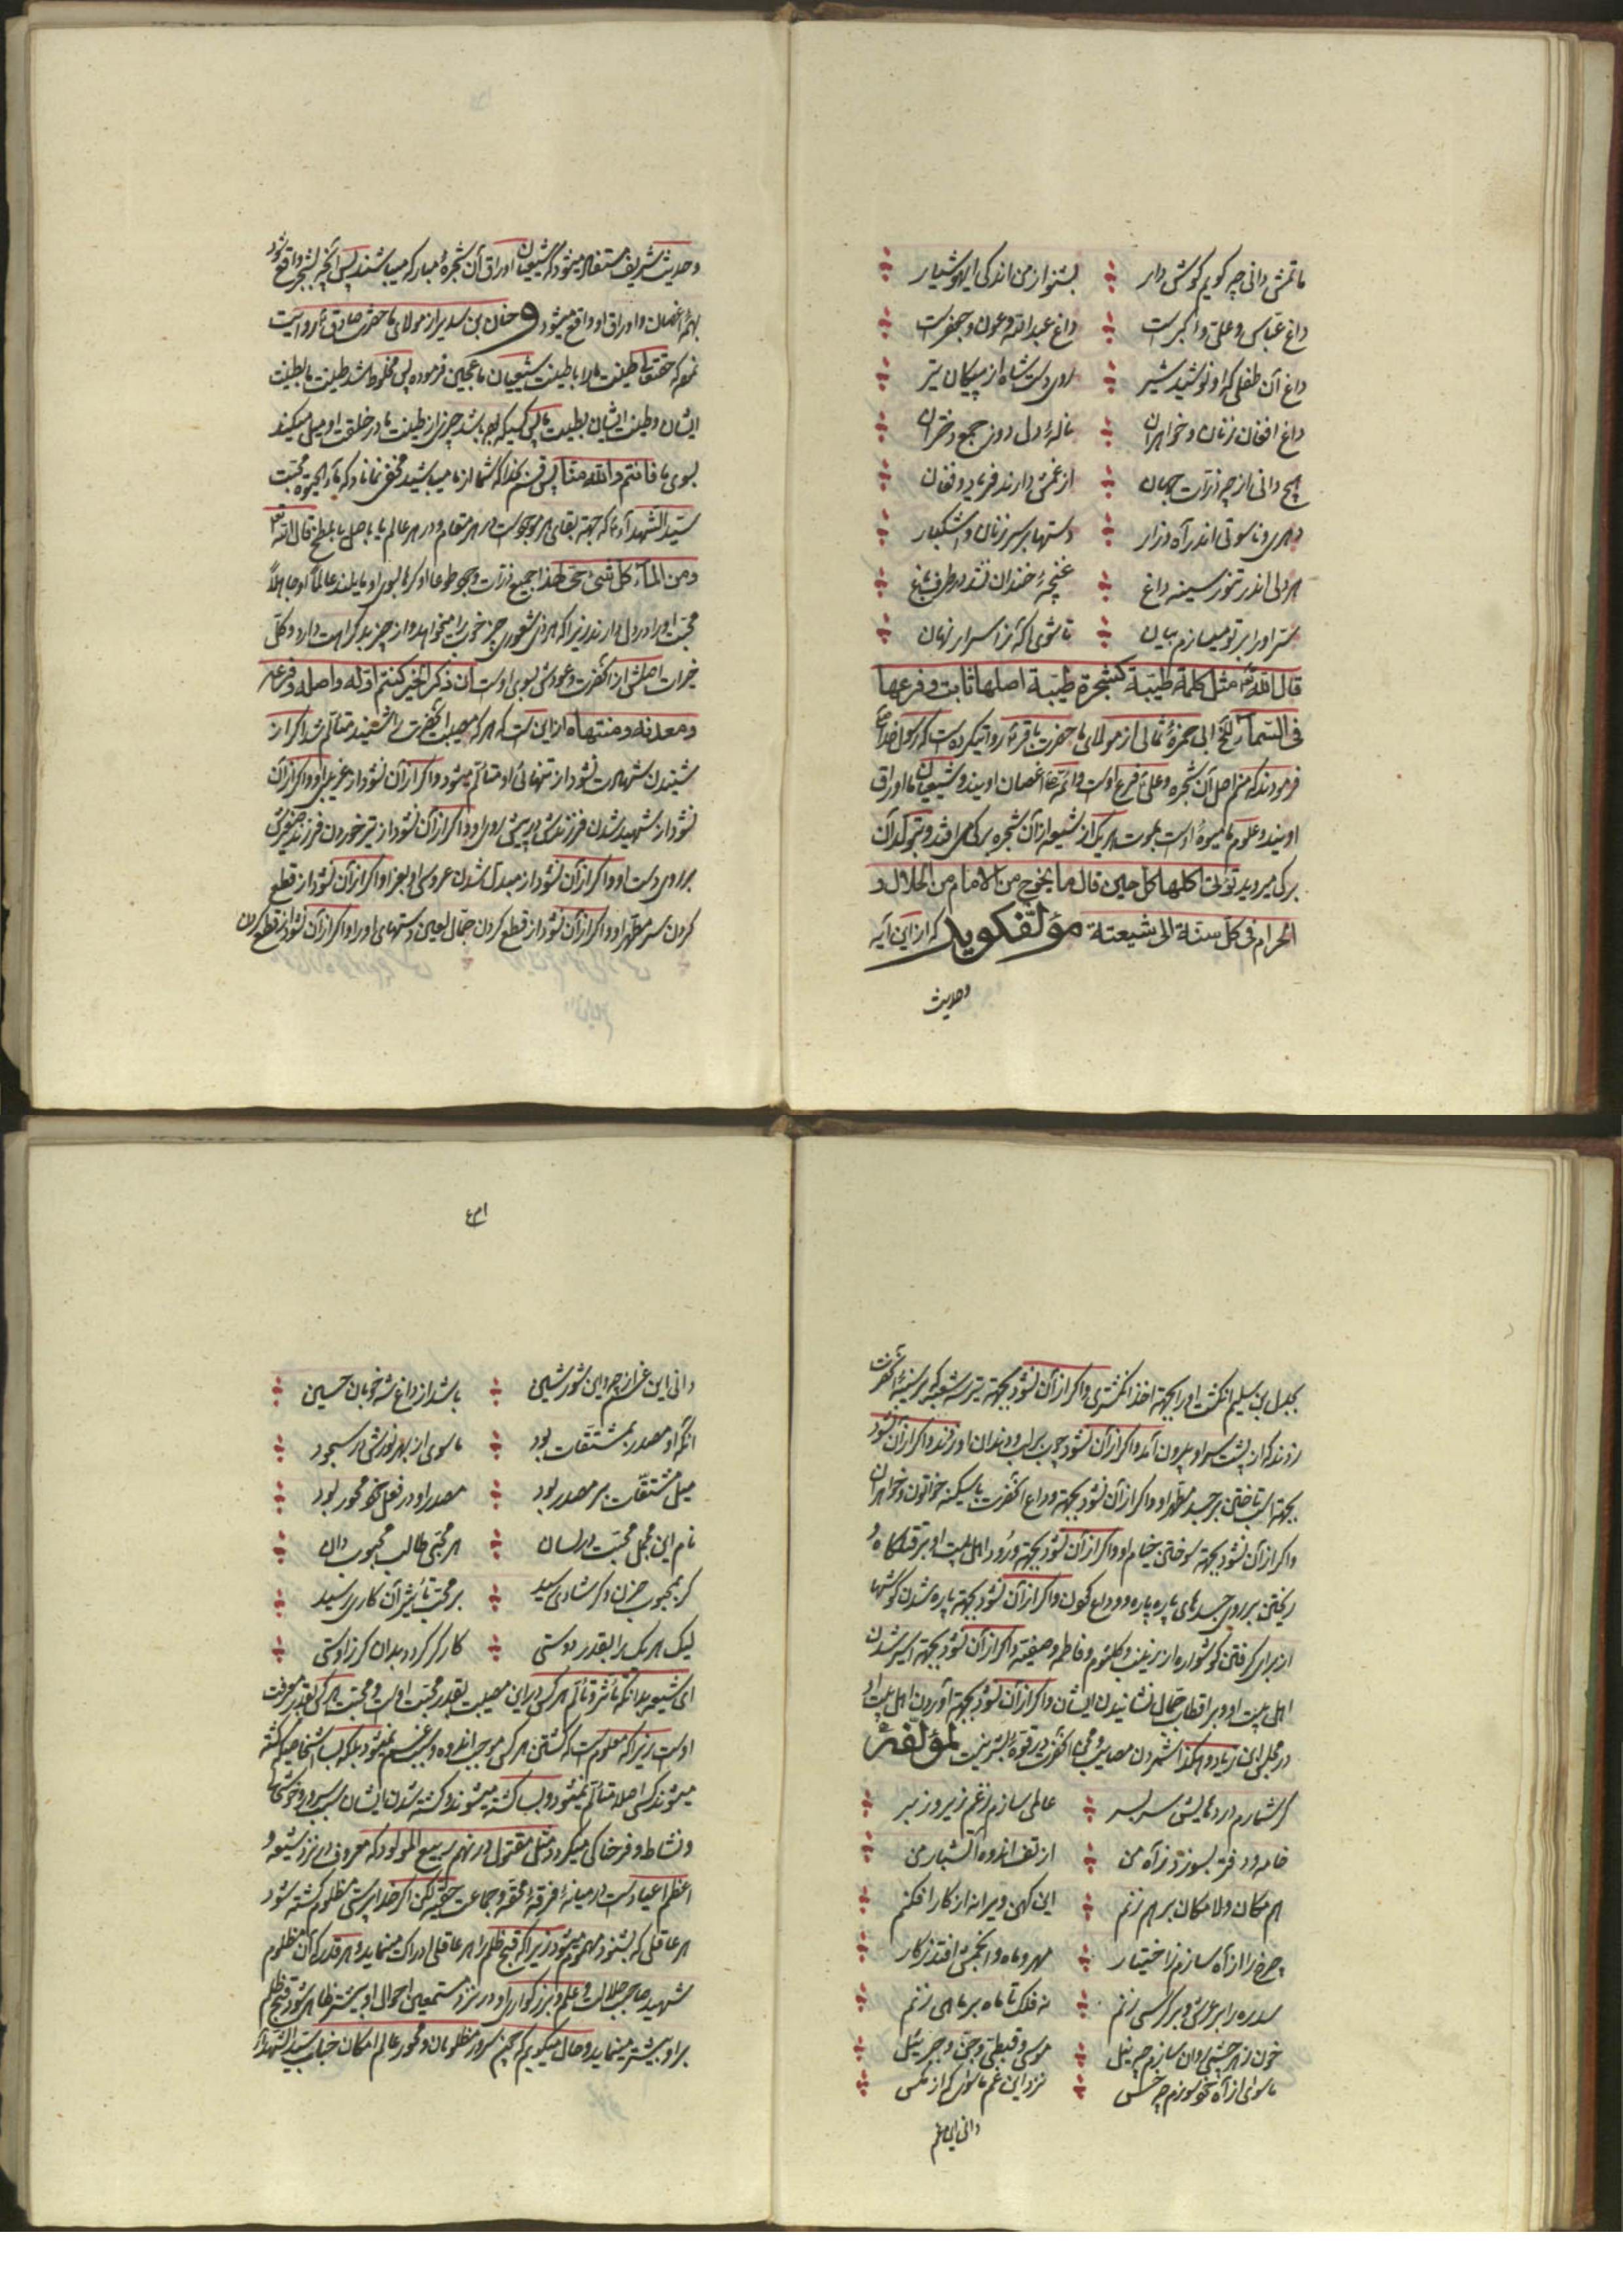 ماتمش دانی چه گویم گوش دار بشنو از من اندکی ای هوشیار
داغ عباس و علی و اکبرست داغ عبدالله و عون و جعفرست
داغ آن طفلی که او نوشید شیر روی دست شاه از پیکان تیر
داغ افغان زنان و خواهران نالهٔ دل دوز جمع دختران
هیچ دانی از چه ذرّات جهان از غمش دارند فریاد و فغان
دهری و ناسوتی اندر آه و زار دستها بر سر زنان و اشکبار
هر دلی اندر تنور سینه داغ غنچهٔ خندان نشد در طرف باغ
سرّ او را بر تو میسازم بیان تا شوی آگه ز اسرار نهان
قال الله تع مثل کلمة طیّبة کشجرة طیّبة اصلها ثابت و فرعها
فی السّماء الخ ابی حمزهٔ ثمالی از مولای ما حضرت باقر ع روایت کرده است که رسول خدا ص
فرمودند که منم اصل آن شجره و علی ع فرع اوست و ائمه اغصان اویند و شیعیان ما اوراق
اویند و علوم ما میوهٔ اوست بموت هر یک از شیعه از آن شجره برگی می افتد و بتولد آن
برگ میروید تؤتی اکلها کل حین قال ما یخرج من الامام من الحلال و
الحرام فی کل سنة الی شیعته مؤلف گوید که از این آیه
وحدیث
وحدیث شریف مستفاد میشود که شیعیان اوراق آن شجرهٔ مبارکه میباشند پس آنچه بشجر واقع شود
بهمهٔ اغصان و اوراق او واقع میشود و حنان بن سدیر از مولای ما حضرت صادق ع روایت
نموده که حقتعالی طینت ما را با طینت شیعیان ما عجین فرموده پس مخلوط شد طینت ما بطینت
ایشان و طینت ایشان بطینت ما پس کسیکه بوده باشد چیزی از طینت ما در خلقت او میل میکند
بسوی ما فانتم والله منّا پس قسم بخدا که شما از ما میباشید مخفی نماناد که ماء الحیوة محبت
سیّد الشهداء ع که جهة بقای هر موجودست در هر مقام و در هر عالم یا باصل یا بطمع قال الله تع
و من الماء کل شیء حی لهذا جمیع ذرّات وجود طوعاً او کرهاً بسوی او مایلند عالماً او جاهلاً
محبت او را در دل دارند زیرا که هر ذی شعوری چیز خوب را میخواهد و از چیز بد کراهت دارد و کلّ
خیرات اصلش از آنحضرت و عودش بسوی اوست ان ذکر الخیر کنتم اوله و اصله و فرعه
و معدنه و منتهاه از این است که هر که مصیبت آنحضرت را شنید متألّم شد اگر از
شنیدن شهادت نشود از تنهائی او متألم میشود و اگر از آن نشود از غریبی او و اگر از آن
نشود از شهید شدن فرزندش در پیش روی او و اگر از آن نشود از تیر خوردن فرزند صغیرش
بر روی دست او و اگر از آن نشود از مبدّل شدن عروسی او بعزا و اگر از آن نشود از قطع
کردن سر مطهّر او و اگر از آن نشود از قطع کردن جمّال لعین دستهای او را و اگر از آن نشود از قطع کردن
بجدل بن سلیم انگشت او را بجهة اخذ انگشتری و اگر از آن نشود بجهة تیر سه شعبه که بر سینهٔ آنحضرت
زدند که از پشت سر او بیرون آمد و اگر از آن نشود چوب بر لب و دندان او زدند و اگر از آن نشود
بجهة اسب تاختن بر جسد مطهّر او و اگر از آن نشود بجهة وداع آنحضرت با سکینه خواتون و خواهران
و اگر از آن نشود بجهة سوختن خیام او و اگر از آن نشود بجهة ورود اهل بیت او بر قتلگاه و
ریختن بر روی جسدهای پاره پاره و وداع کردن و اگر از آن نشود بجهة پاره شدن گوشها
از برای گرفتن گوشواره از زینب و کلثوم و فاطمه و صفیّه و اگر از آن نشود بجهة اسیر شدن
اهل بیت او و بر اقطاب جمال نشانیدن ایشان و اگر از آن نشود بجهة آوردن اهل بیت او
در مجلس ابن زیاد و هکذا شمردن مصایب و محن آنحضرت در قوهٔ بشر نیست لمؤلّفه
گر شمارم دردهایش سر بسر عالمی سازم ز غم زیر و زبر
خامه و دفتر بسوزد ز آه من از تف اندوه آتشبار من
هم مکان و لامکان بر هم زنم این کهن ویرانه از کار افکنم
چرخ را از آه سازم ز اختیار مهر و ماه و انجمش افتد ز کار
سدره را بر عرش و بر کرسی زنم نه فلک تا ماه بر ماهی زنم
خون ز هر چشمی روان سازم چو نیل موسی و قبطی و جنّ و جبرئیل
ماسوی از آه خود سوزم چو خس نزد این غم ماسوی کم از مگس
دانی این غم
۱۳۶
دانی این غم از چه و این شور و شین باشد از داغ شه خوبان حسین
آنکه او مصدر بمشتقات بود ماسوی از بهر نورش در سجود
میل مشتقّات بر مصدر بود مصدر او در فعل خود محور بود
نام این میل محبّت در لسان هر محبّی طالب محبوب دان
گر بمحبوب حزن و گر شادی رسید بر محب تأثیر آن کاری رسید
لیک هر یک را بقدر دوستی کارگر گردد بدان گر ز اوستی
ای شیعه بدانکه تأثر و تألّم هر کس در این مصیبت بقدر محبّت اوست و محبّت هر کس بقدر معرفت
اوست زیرا که معلوم است که کشتن هر کس موجب اندوه و غم نمیشود بلکه بسا اشخاصیکه کشته
میشوند کس اصلا متألّم نمیشود و بسا کشته میشوند و کشته شدن ایشان سبب سرور و خوشی
و نشاط و فرحناکی میگردد مثل مقتول در نهم ربیع المولود که معروف در نزد شیعه و
اعظم اعیادست در میانهٔ فرقهٔ محقه و جماعت حقیّه لکن اگر خداپرستی مظلوم کشته شود
هر عاقلی که بشنود مهموم میشود زیرا که قبح ظلم را هر عاقلی ادراک مینماید و هر قدر که آن مظلوم
شهید صاحب جلالت و علم و بزرگواری او در نزد مستمعین احوال او بیشتر ظاهر شود قبح ظلم
بر او بیشتر مینماید و حال میگویم که چنین سرور مظلومان و محور عالم امکان جناب سیّد الشهداء